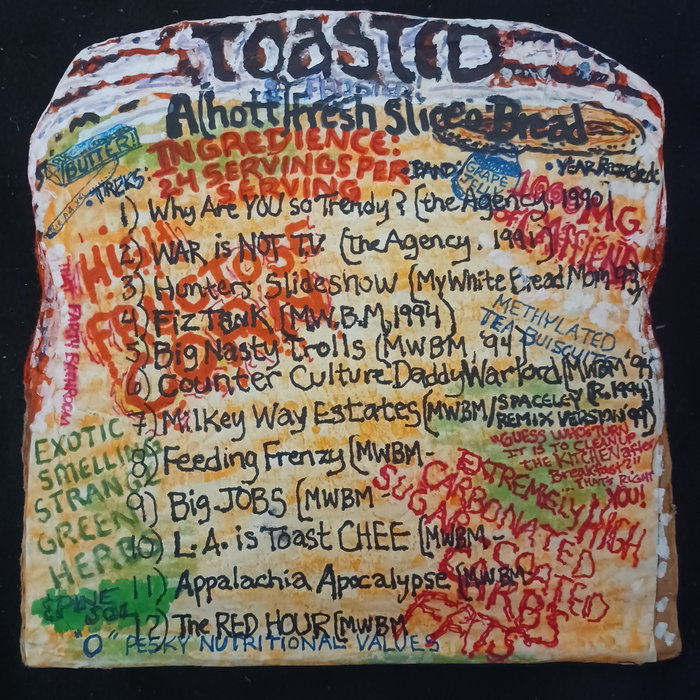 TOASTED
A(hott)Fresh Slice o Bread
BUTTER!
INGREDIENCE:
24 SERVINGS PER
SERVING
• TREKS •
• BAND •
GRAPE
• YEAR Recorded:
1) Why Are YOU so Trendy? (the Agency, 1990)
1,000 M.G.
OF
2) WAR is NOT TV (the Agency, 1991)
HIGH
FRUCTOSE
CORN
3) Hunters Slideshow (My White Bread Mom '93)
4) Fiz Tank (M.W.B.M, 1994)
METHYLATED
TEA-BUISCUITS
5) Big Nasty Trolls (MWBM, '94
6) Counter Culture Daddy Warlord (MWBM '94
7) Milkey Way Estates (MWBM/SPACELEY (R. 1994)
REMIX VERSION '94)
EXOTIC
SMELLING
STRANGE
GREEN
HERB
8) Feeding Frenzy (MWBM-
"GUESS WHO'S TURN
IT IS TO CLEAN UP
THE KITCHEN after
Breakfast?!!
...THAT'S RIGHT
YOU!
9) Big JOBS (MWBM-
10) L.A. is Toast CHEE (MWBM-
EXTREMELY HIGH
CARBONATED
SUGAR COATED
11) Appalachia Apocalypse (MWBM-
FATS
PINE
SOL
12) The RED HOUR (MWBM
"O" PESKY NUTRITIONAL VALUES